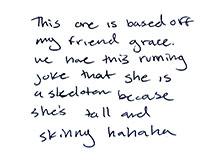 This one is based off
my friend grace.
we have this running
joke that she is
a skeleton because
she's tall and
skinny hahaha